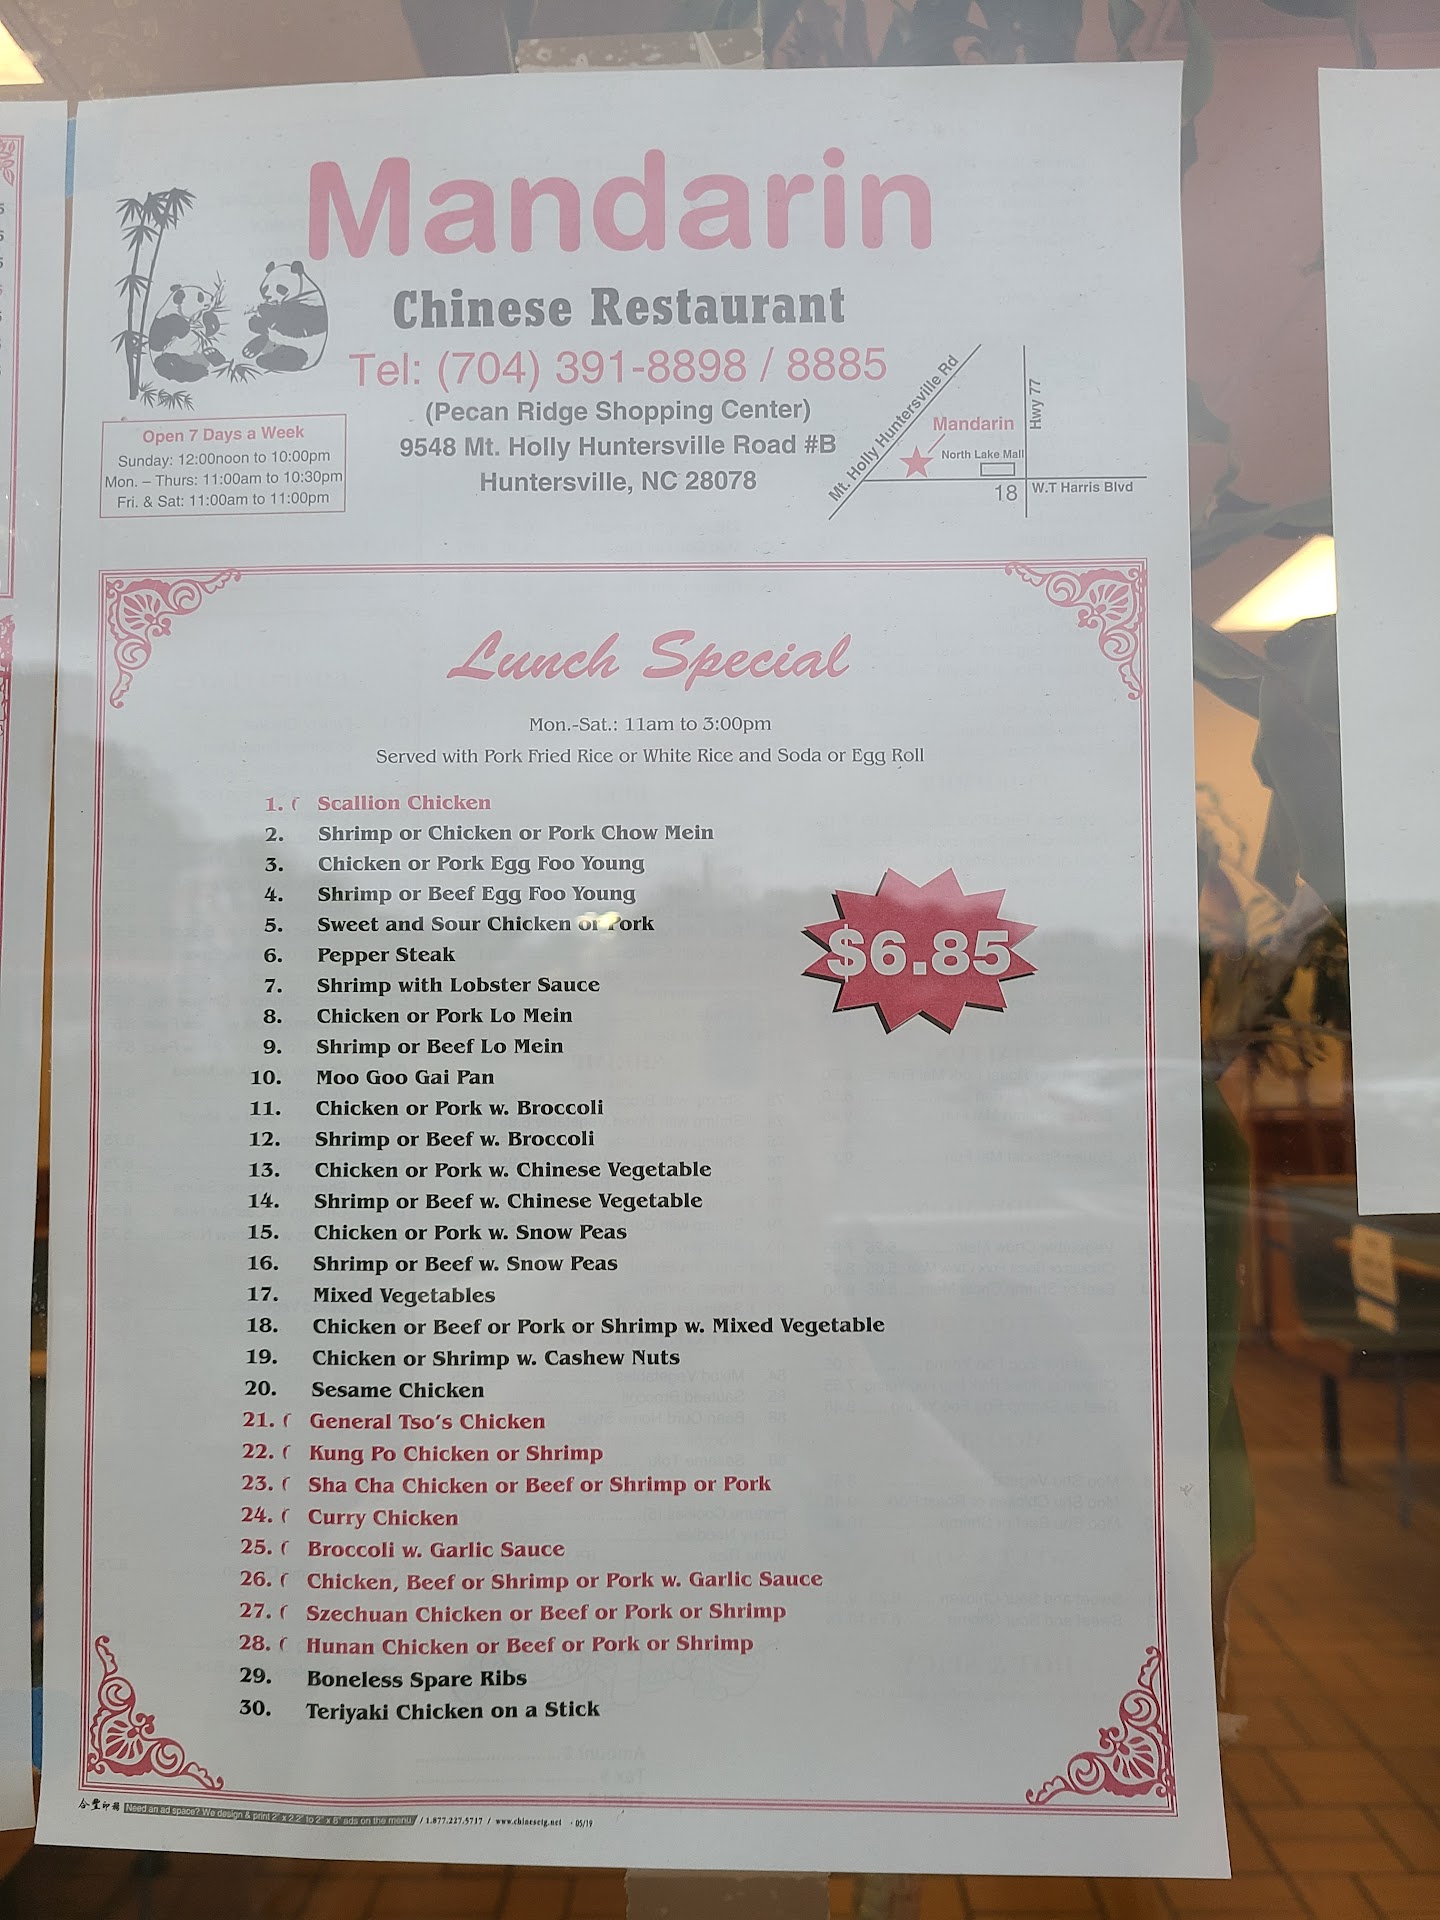 Mandarin
Chinese Restaurant
Tel: (704) 391-8898 / 8885
(Pecan Ridge Shopping Center)
9548 Mt. Holly Huntersville Road #B
Huntersville, NC 28078
Open 7 Days a Week
Sunday: 12:00noon to 10:00pm
Mon. – Thurs: 11:00am to 10:30pm
Fri. & Sat: 11:00am to 11:00pm
Mt. Holly Huntersville Rd
Hwy 77
Mandarin
North Lake Mall
18
W.T Harris Blvd
Lunch Special
Mon.-Sat.: 11am to 3:00pm
Served with Pork Fried Rice or White Rice and Soda or Egg Roll
1. Scallion Chicken
2. Shrimp or Chicken or Pork Chow Mein
3. Chicken or Pork Egg Foo Young
4. Shrimp or Beef Egg Foo Young
5. Sweet and Sour Chicken or Pork
6. Pepper Steak
7. Shrimp with Lobster Sauce
8. Chicken or Pork Lo Mein
9. Shrimp or Beef Lo Mein
10. Moo Goo Gai Pan
11. Chicken or Pork w. Broccoli
12. Shrimp or Beef w. Broccoli
13. Chicken or Pork w. Chinese Vegetable
14. Shrimp or Beef w. Chinese Vegetable
15. Chicken or Pork w. Snow Peas
16. Shrimp or Beef w. Snow Peas
17. Mixed Vegetables
18. Chicken or Beef or Pork or Shrimp w. Mixed Vegetable
19. Chicken or Shrimp w. Cashew Nuts
20. Sesame Chicken
21. General Tso's Chicken
22. Kung Po Chicken or Shrimp
23. Sha Cha Chicken or Beef or Shrimp or Pork
24. Curry Chicken
25. Broccoli w. Garlic Sauce
26. Chicken, Beef or Shrimp or Pork w. Garlic Sauce
27. Szechuan Chicken or Beef or Pork or Shrimp
28. Hunan Chicken or Beef or Pork or Shrimp
29. Boneless Spare Ribs
30. Teriyaki Chicken on a Stick
$6.85
Need an ad space? We design & print 2" x 2.2" to 2" x 8" ads on the menu / 1.877.227.5717 / www.chinesetg.net · 05/19